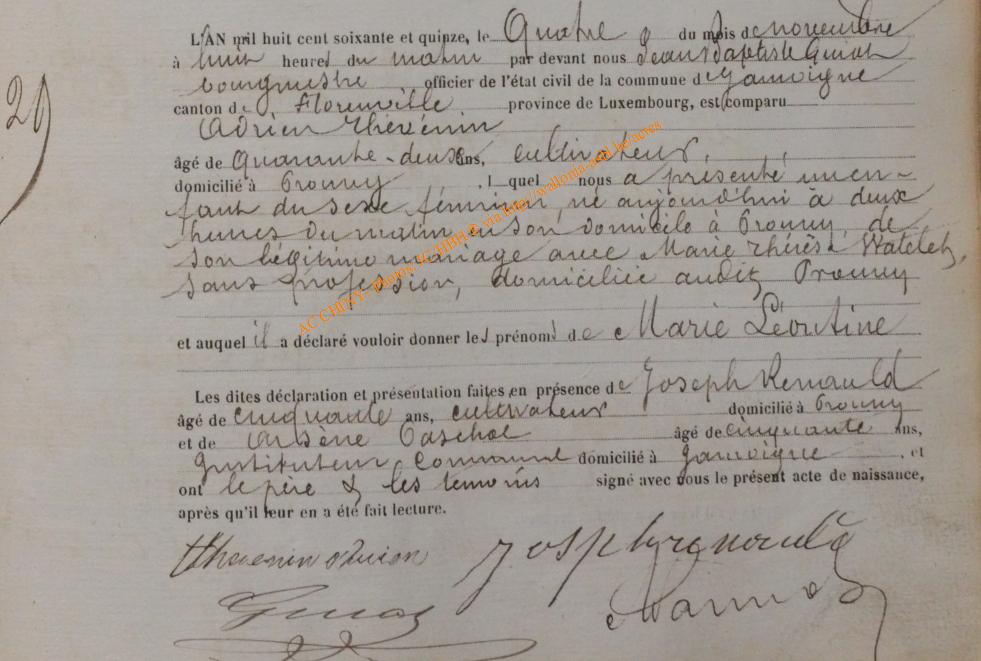 29
L'AN mil huit cent soixante et quinze, le Quatre du mois de novembre
à huit heures du matin par devant nous Jean Baptiste Guiot
bourgmestre officier de l'état civil de la commune de Jamoigne
canton de Florenville province de Luxembourg, est comparu
Adrien Thévénin
âgé de quarante-deux ans, cultivateur,
domicilié à Prouvy, lequel nous a présenté un en-
fant du sexe féminin, né aujourd'hui à deux
heures du matin en son domicile à Prouvy, de
son légitime mariage avec Marie Thérèse Watelet,
sans profession, domiciliée audit Prouvy
et auquel il a déclaré vouloir donner les prénoms de Marie Léontine
Les dites déclaration et présentation faites en présence de Joseph Renauld
âgé de cinquante ans, cultivateur domicilié à Prouvy
et de Arsène Paschal âgé de cinquante ans,
Instituteur Communal domicilié à Jamoigne, et
ont le père & les témoins signé avec nous le présent acte de naissance,
après qu'il leur en a été fait lecture.
Thevenin adrien Joseph renauld
Guiot
AC CHINY- Photos ©GTIHBH & via http://wallonia-and.be/actes